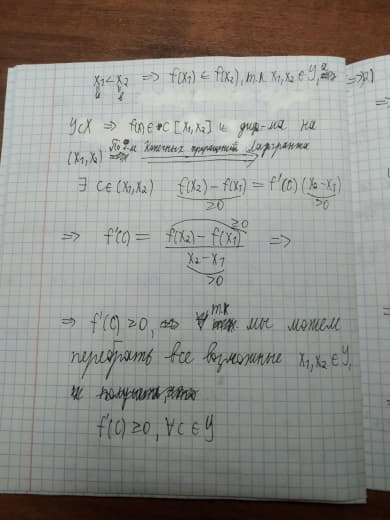 x₁ < x₂ ⇒ f(x₁) ≤ f(x₂), т.к. x₁, x₂ ∈ Y,
Y⊂X ⇒ f(x) ∈ C [x₁, x₂] и диф-ма на
(x₁, x₂) ⇒ По Th Конечных приращений Лагранжа
∃ c ∈ (x₁, x₂) f(x₂) − f(x₁) = f'(c) (x₂ − x₁)
≥0 >0
⇒ f'(c) = f(x₂) − f(x₁) ≥0 ⇒
x₂ − x₁
>0
⇒ f'(c) ≥ 0, т.к мы можем
перебрать все возможные x₁, x₂ ∈ Y,
f'(c) ≥ 0, ∀c ∈ Y